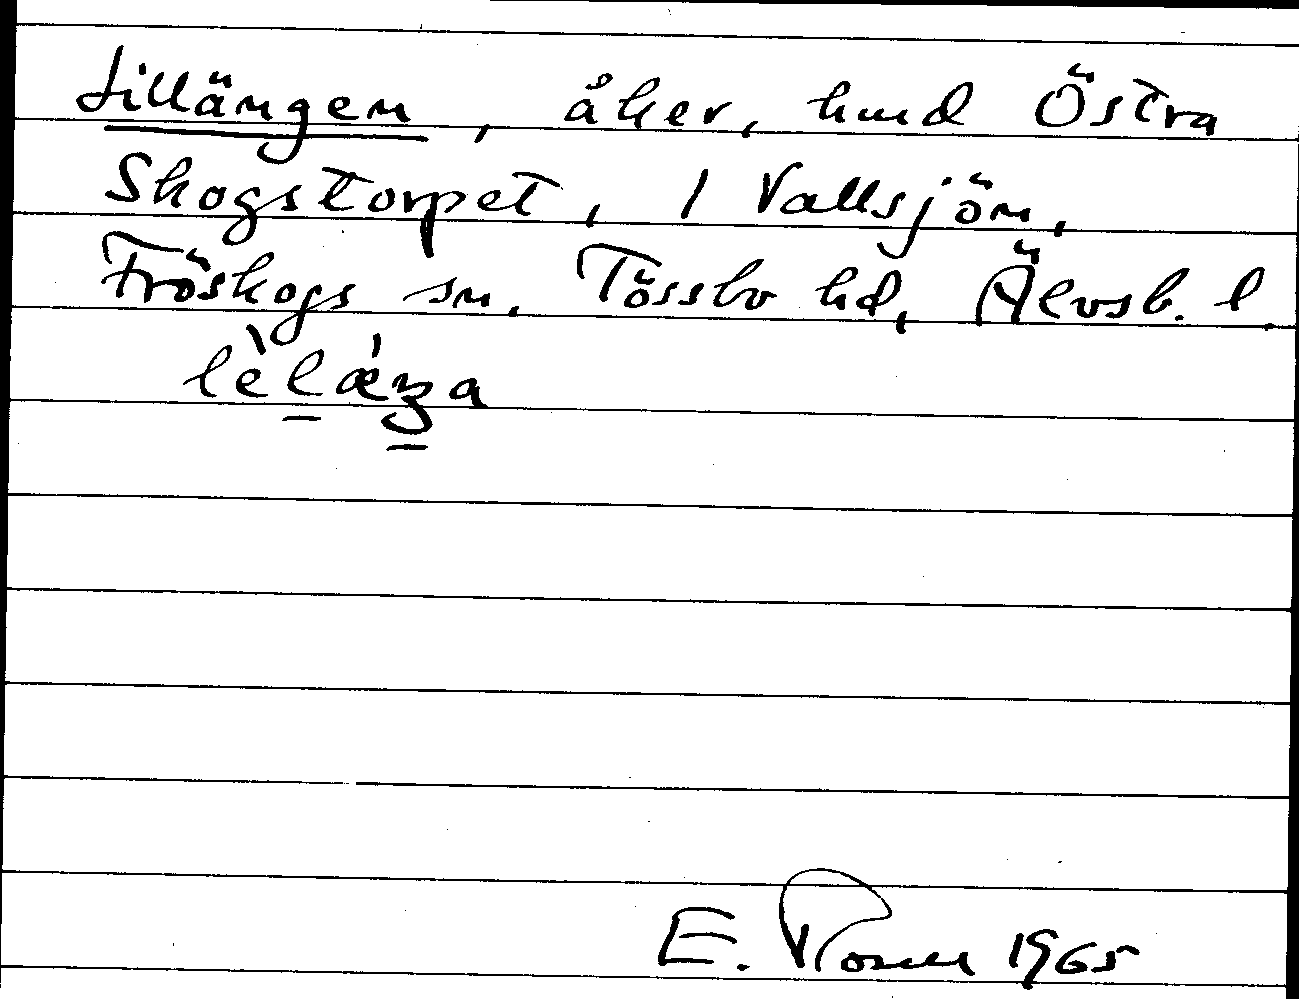 Lillängen, åker, hmd Östra
Skogstorpet, 1 Vallsjön,
Fröskogs sn, Tössbo hd, Älvsb. l.
E. Rosell 1965